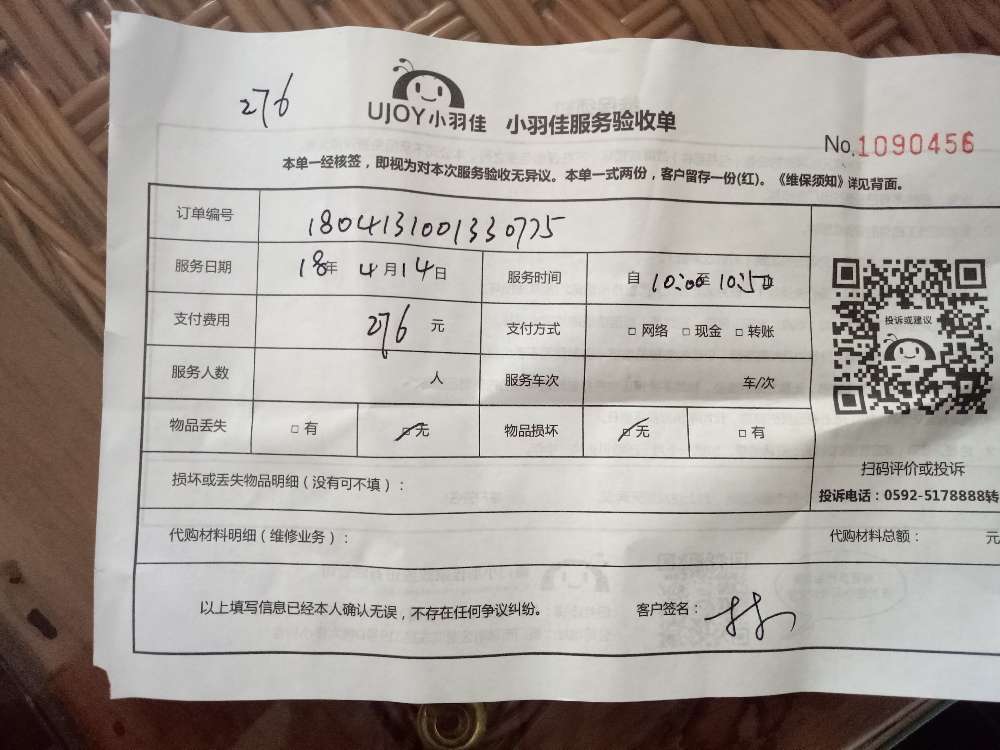 276
UJOY小羽佳 小羽佳服务验收单
No.1090456
本单一经核签，即视为对本次服务验收无异议。本单一式两份，客户留存一份(红)。《维保须知》详见背面。
订单编号 1804131001330775
服务日期 18年 4月14日 服务时间 自 10:00至 10:50
支付费用 276 元 支付方式 □ 网络 □ 现金 □ 转账
投诉或建议
服务人数 人 服务车次 车/次
物品丢失 □ 有 □ 无 物品损坏 □ 无 □ 有
扫码评价或投诉
损坏或丢失物品明细（没有可不填）：
投诉电话：0592-5178888转
代购材料明细（维修业务）： 代购材料总额： 元
以上填写信息已经本人确认无误，不存在任何争议纠纷。 客户签名：